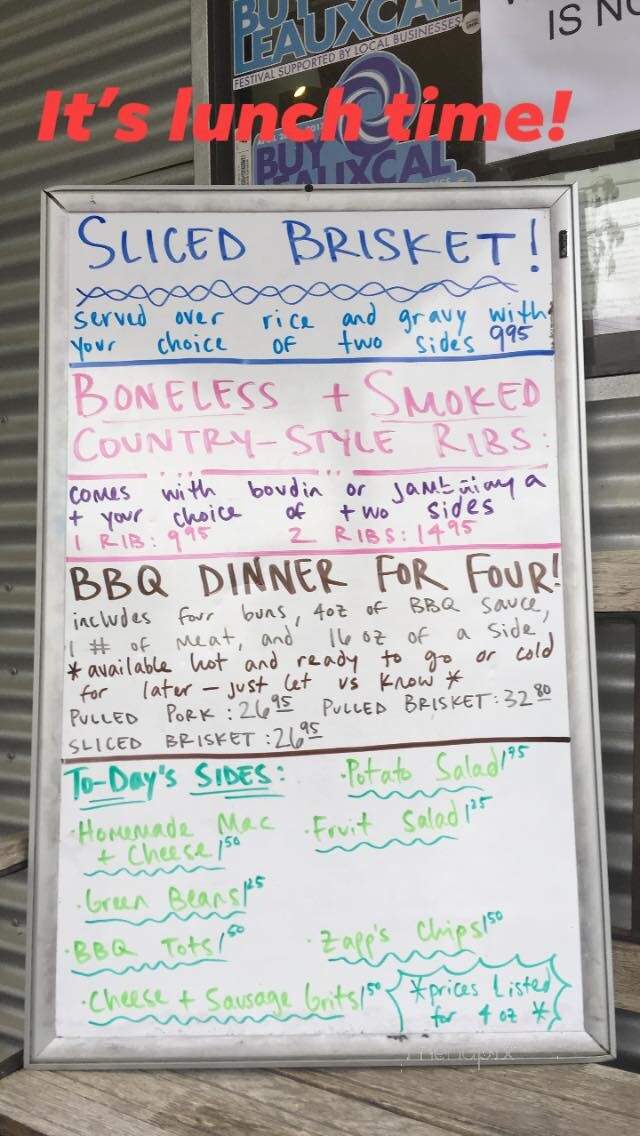 BUY
LEAUXCAL
FESTIVAL SUPPORTED BY LOCAL BUSINESSES
IS NO
It's lunch time!
BUY
LEAUXCAL
SLICED BRISKET!
served over rice and gravy with
your choice of two sides 995
BONELESS + SMOKED
COUNTRY-STYLE RIBS:
comes with boudin or
+ your choice of two sides
1 RIB: 995 2 RIBS: 1495
BBQ DINNER FOR FOUR!
includes four buns, 4oz of BBQ sauce,
1 # of meat, and 16 oz of a side
* available hot and ready to go or cold
for later - just let us know *
PULLED PORK: 26 95 PULLED BRISKET: 32 80
SLICED BRISKET: 26 95
TO-Day's SIDES:
· Potato Salad 1 95
· Homemade Mac
+ Cheese 1 50
· Fruit Salad 1 25
· Green Beans 1 25
· BBQ Tots 1 50
· Zapp's Chips 1 50
· Cheese + Sausage Grits 1 50
* prices listed
for 4 oz *